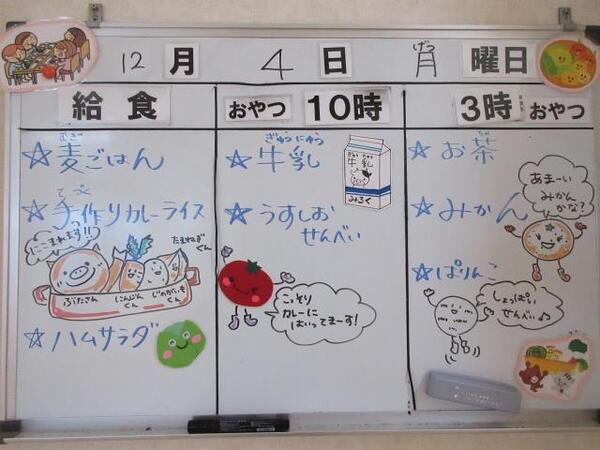 12 月 4 日 月 げつ 曜日
給食
おやつ 10時
3時 おやつ
むぎ
☆麦ごはん
☆手作りカレーライス
にこまれます!!
ぶたさん
にんじんくん
じゃがいもくん
たまねぎくん
☆ハムサラダ
ぎゅうにゅう
☆牛乳
牛乳
みるく
☆うすしお
せんべい
こっそり
カレーに
はいってまーす!
ちゃ
☆お茶
☆みかん
あまーい
みかん
かな?
☆ぱりんこ
しょっぱい
せんべい♪